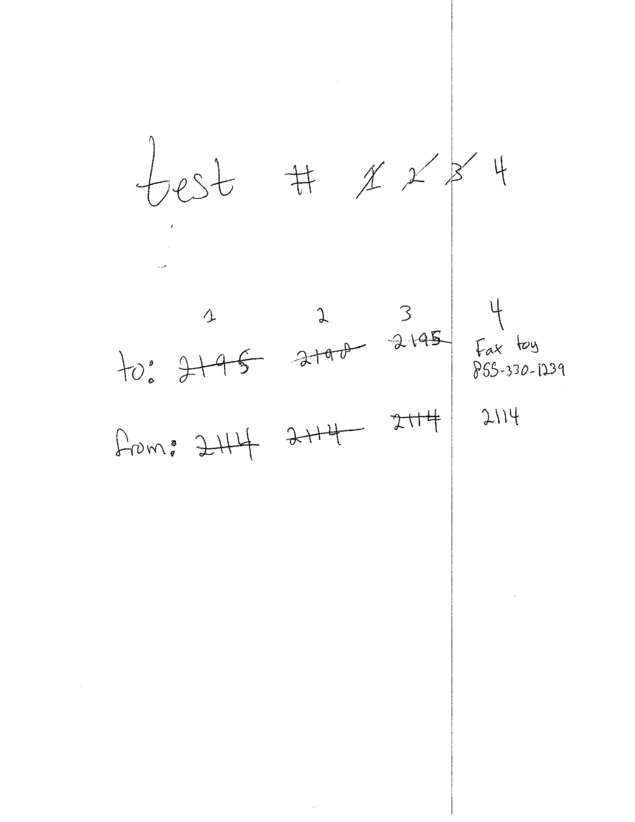 test # 1 2 3 4
1 2 3 4
to: 2195 2190 2195 Fax toy
855-330-1239
from: 2114 2114 2114 2114